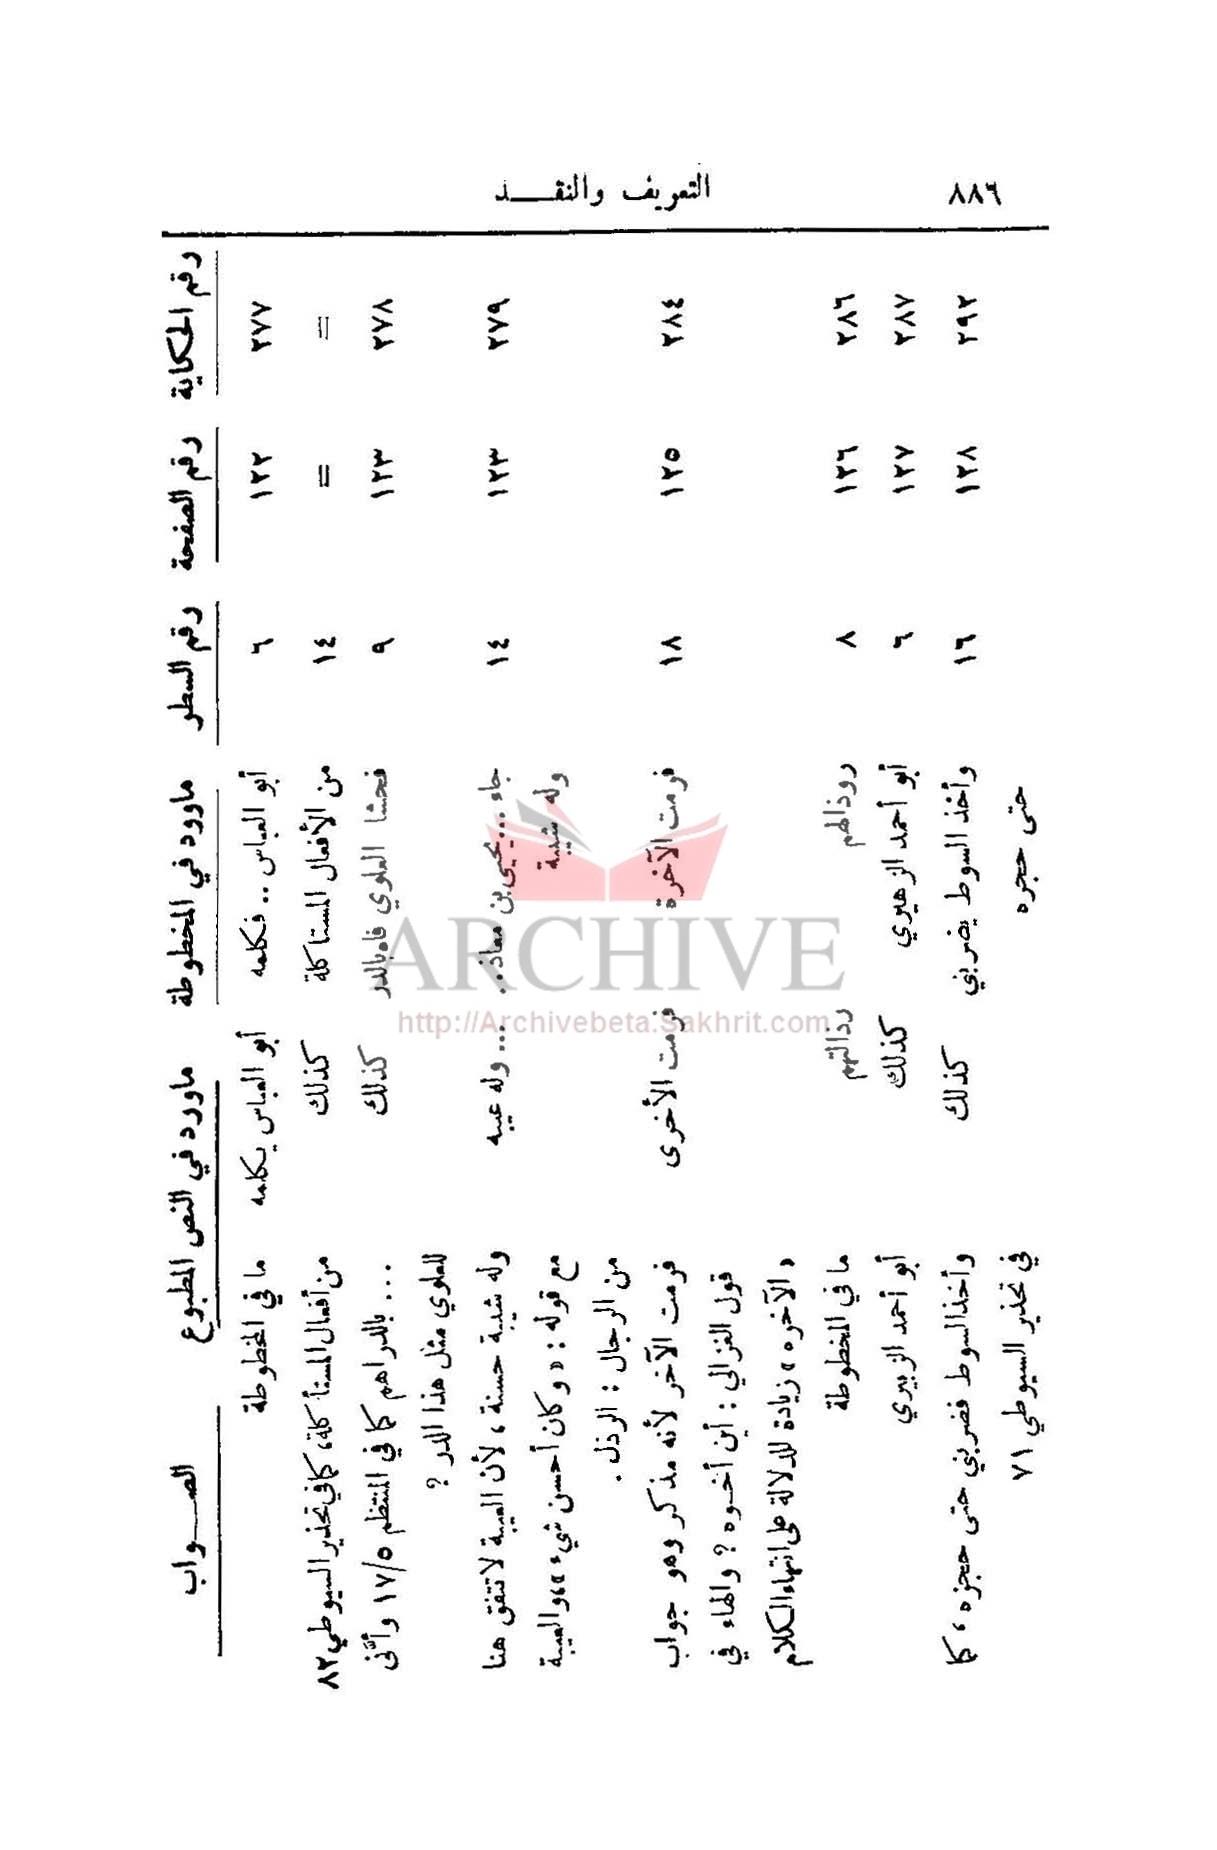 ٨٨٦
التعريف والنقـــد
رقم الحكاية
رقم الصفحة
رقم السطر
ماورد في المخطوطة
ماورد في النص المطبوع
الصــواب
٢٧٧
١٢٢
٦
أبو العباس .. فكلمه
أبو العباس يكلمه
ما في المخطوطة
=
=
١٤
من الأفعال المستاكلة
كذلك
من أفعال المستأكلة، كما في تحذير السيوطي ٨٢
٢٧٨
١٢٣
٩
فحشا العلوي فاه بالدر
كذلك
... بالدراهم كما في المنتظم ١٧/٥ وأنَّى
للعلوي مثل هذا الدر ؟
٢٧٩
١٢٣
١٤
جاء ... يحيى بن معاذ ..
وله شيبة
... وله عيبه
وله شيبة حسنة ، لأن العيبة لا تتفق هنا
مع قوله : « وكان أحسن شيء » ، والعيبة
من الرجال : الرذل .
٢٨٤
١٢٥
١٨
فرمت الآخرة
فرمت الأخرى
فرمت الآخر لأنه مذكر وهو جواب
قول الغزالي : أين أخوه ؟ والهاء في
« الآخره » زيادة للدلالة على انتهاء الكلام
٢٨٦
١٢٦
٨
روذالهم
رذالتهم
ما في المخطوطة
٢٨٧
١٢٧
٦
أبو أحمد الزهيري
كذلك
أبو أحمد الزبيري
٢٩٢
١٢٨
١٦
وأخذ السوط يضربني
حتى حجره
كذلك
وأخذ السوط فضربني حتى حجزه ، كما
في تحذير السيوطي ٧١
ARCHIVE
http://Archivebeta.Sakhrit.com